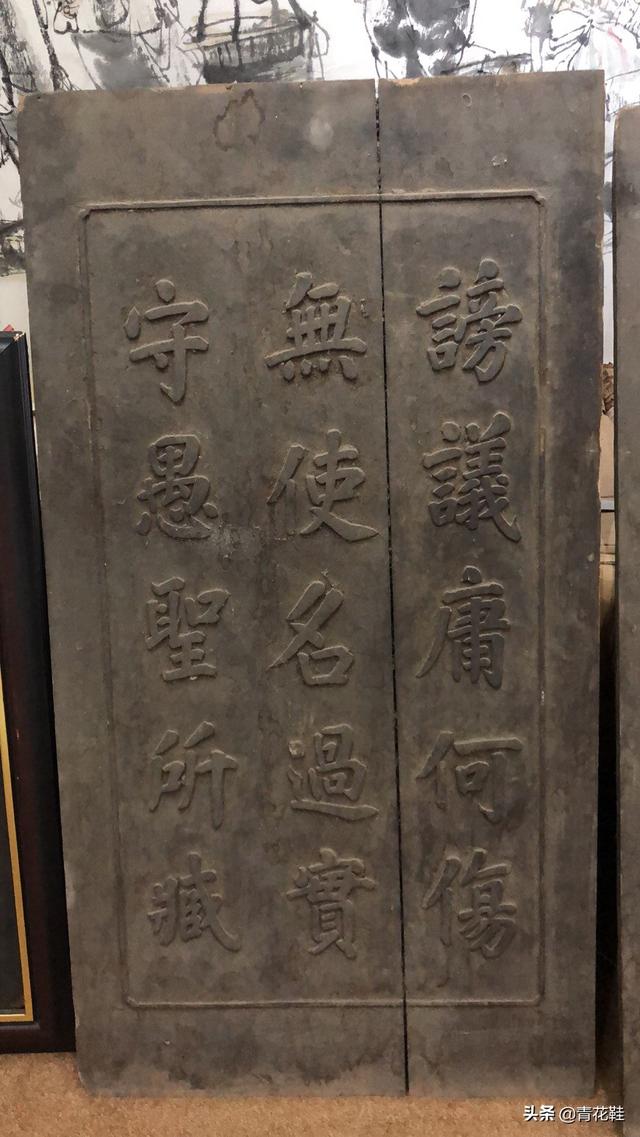 謗議庸何傷
無使名過實
守愚聖所臧
头条 @青花鞋